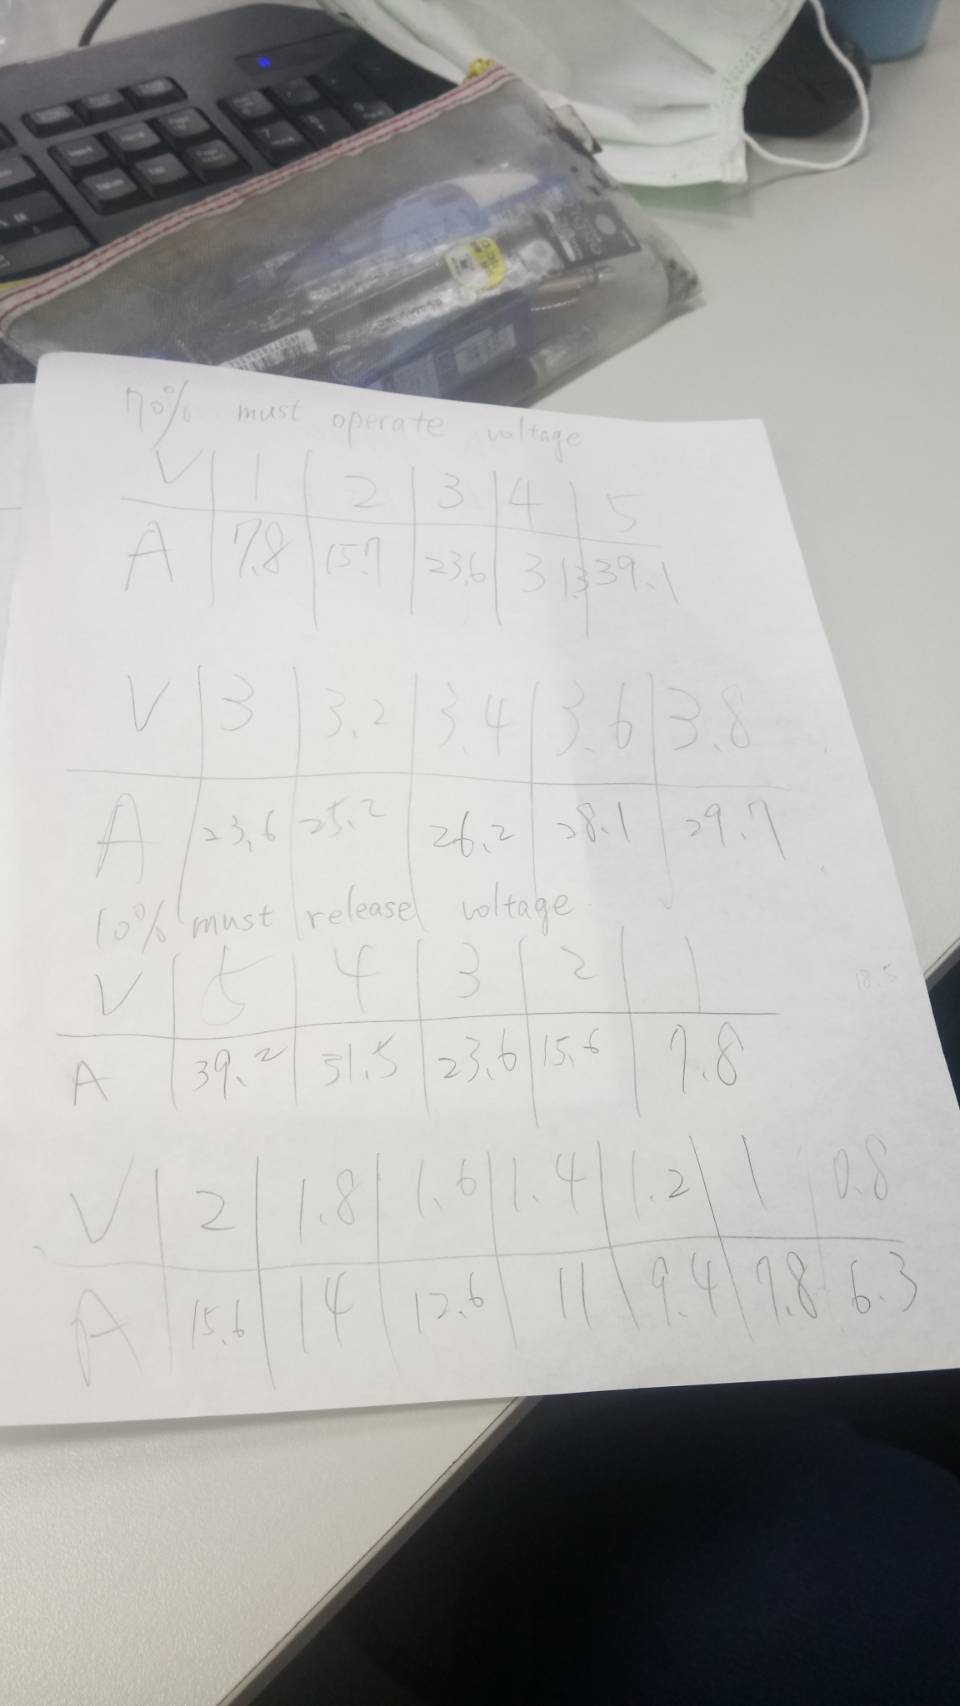 70% must operate voltage
V 1 2 3 4 5
A 7.8 15.7 23.6 31.3 39.1
V 3 3.2 3.4 3.6 3.8
A 23.6 25.2 26.2 28.1 29.7
10% must release voltage
V 5 4 3 2 1
18.5
A 39.2 31.5 23.6 15.6 7.8
V 2 1.8 1.6 1.4 1.2 1 0.8
A 15.6 14 12.6 11 9.4 7.8 6.3